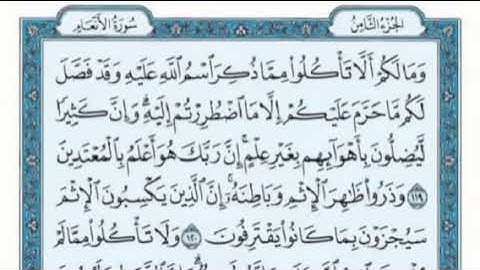 الجزء الثامن
سورة الأنعام
وَمَا لَكُمْ أَلَّا تَأْكُلُوا۟ مِمَّا ذُكِرَ ٱسْمُ ٱللَّهِ عَلَيْهِ وَقَدْ فَصَّلَ
لَكُم مَّا حَرَّمَ عَلَيْكُمْ إِلَّا مَا ٱضْطُرِرْتُمْ إِلَيْهِ ۗ وَإِنَّ كَثِيرًا
لَّيُضِلُّونَ بِأَهْوَآئِهِم بِغَيْرِ عِلْمٍ ۗ إِنَّ رَبَّكَ هُوَ أَعْلَمُ بِٱلْمُعْتَدِينَ
١١٩ وَذَرُوا۟ ظَٰهِرَ ٱلْإِثْمِ وَبَاطِنَهُۥٓ ۚ إِنَّ ٱلَّذِينَ يَكْسِبُونَ ٱلْإِثْمَ
سَيُجْزَوْنَ بِمَا كَانُوا۟ يَقْتَرِفُونَ ١٢٠ وَلَا تَأْكُلُوا۟ مِمَّا لَمْ